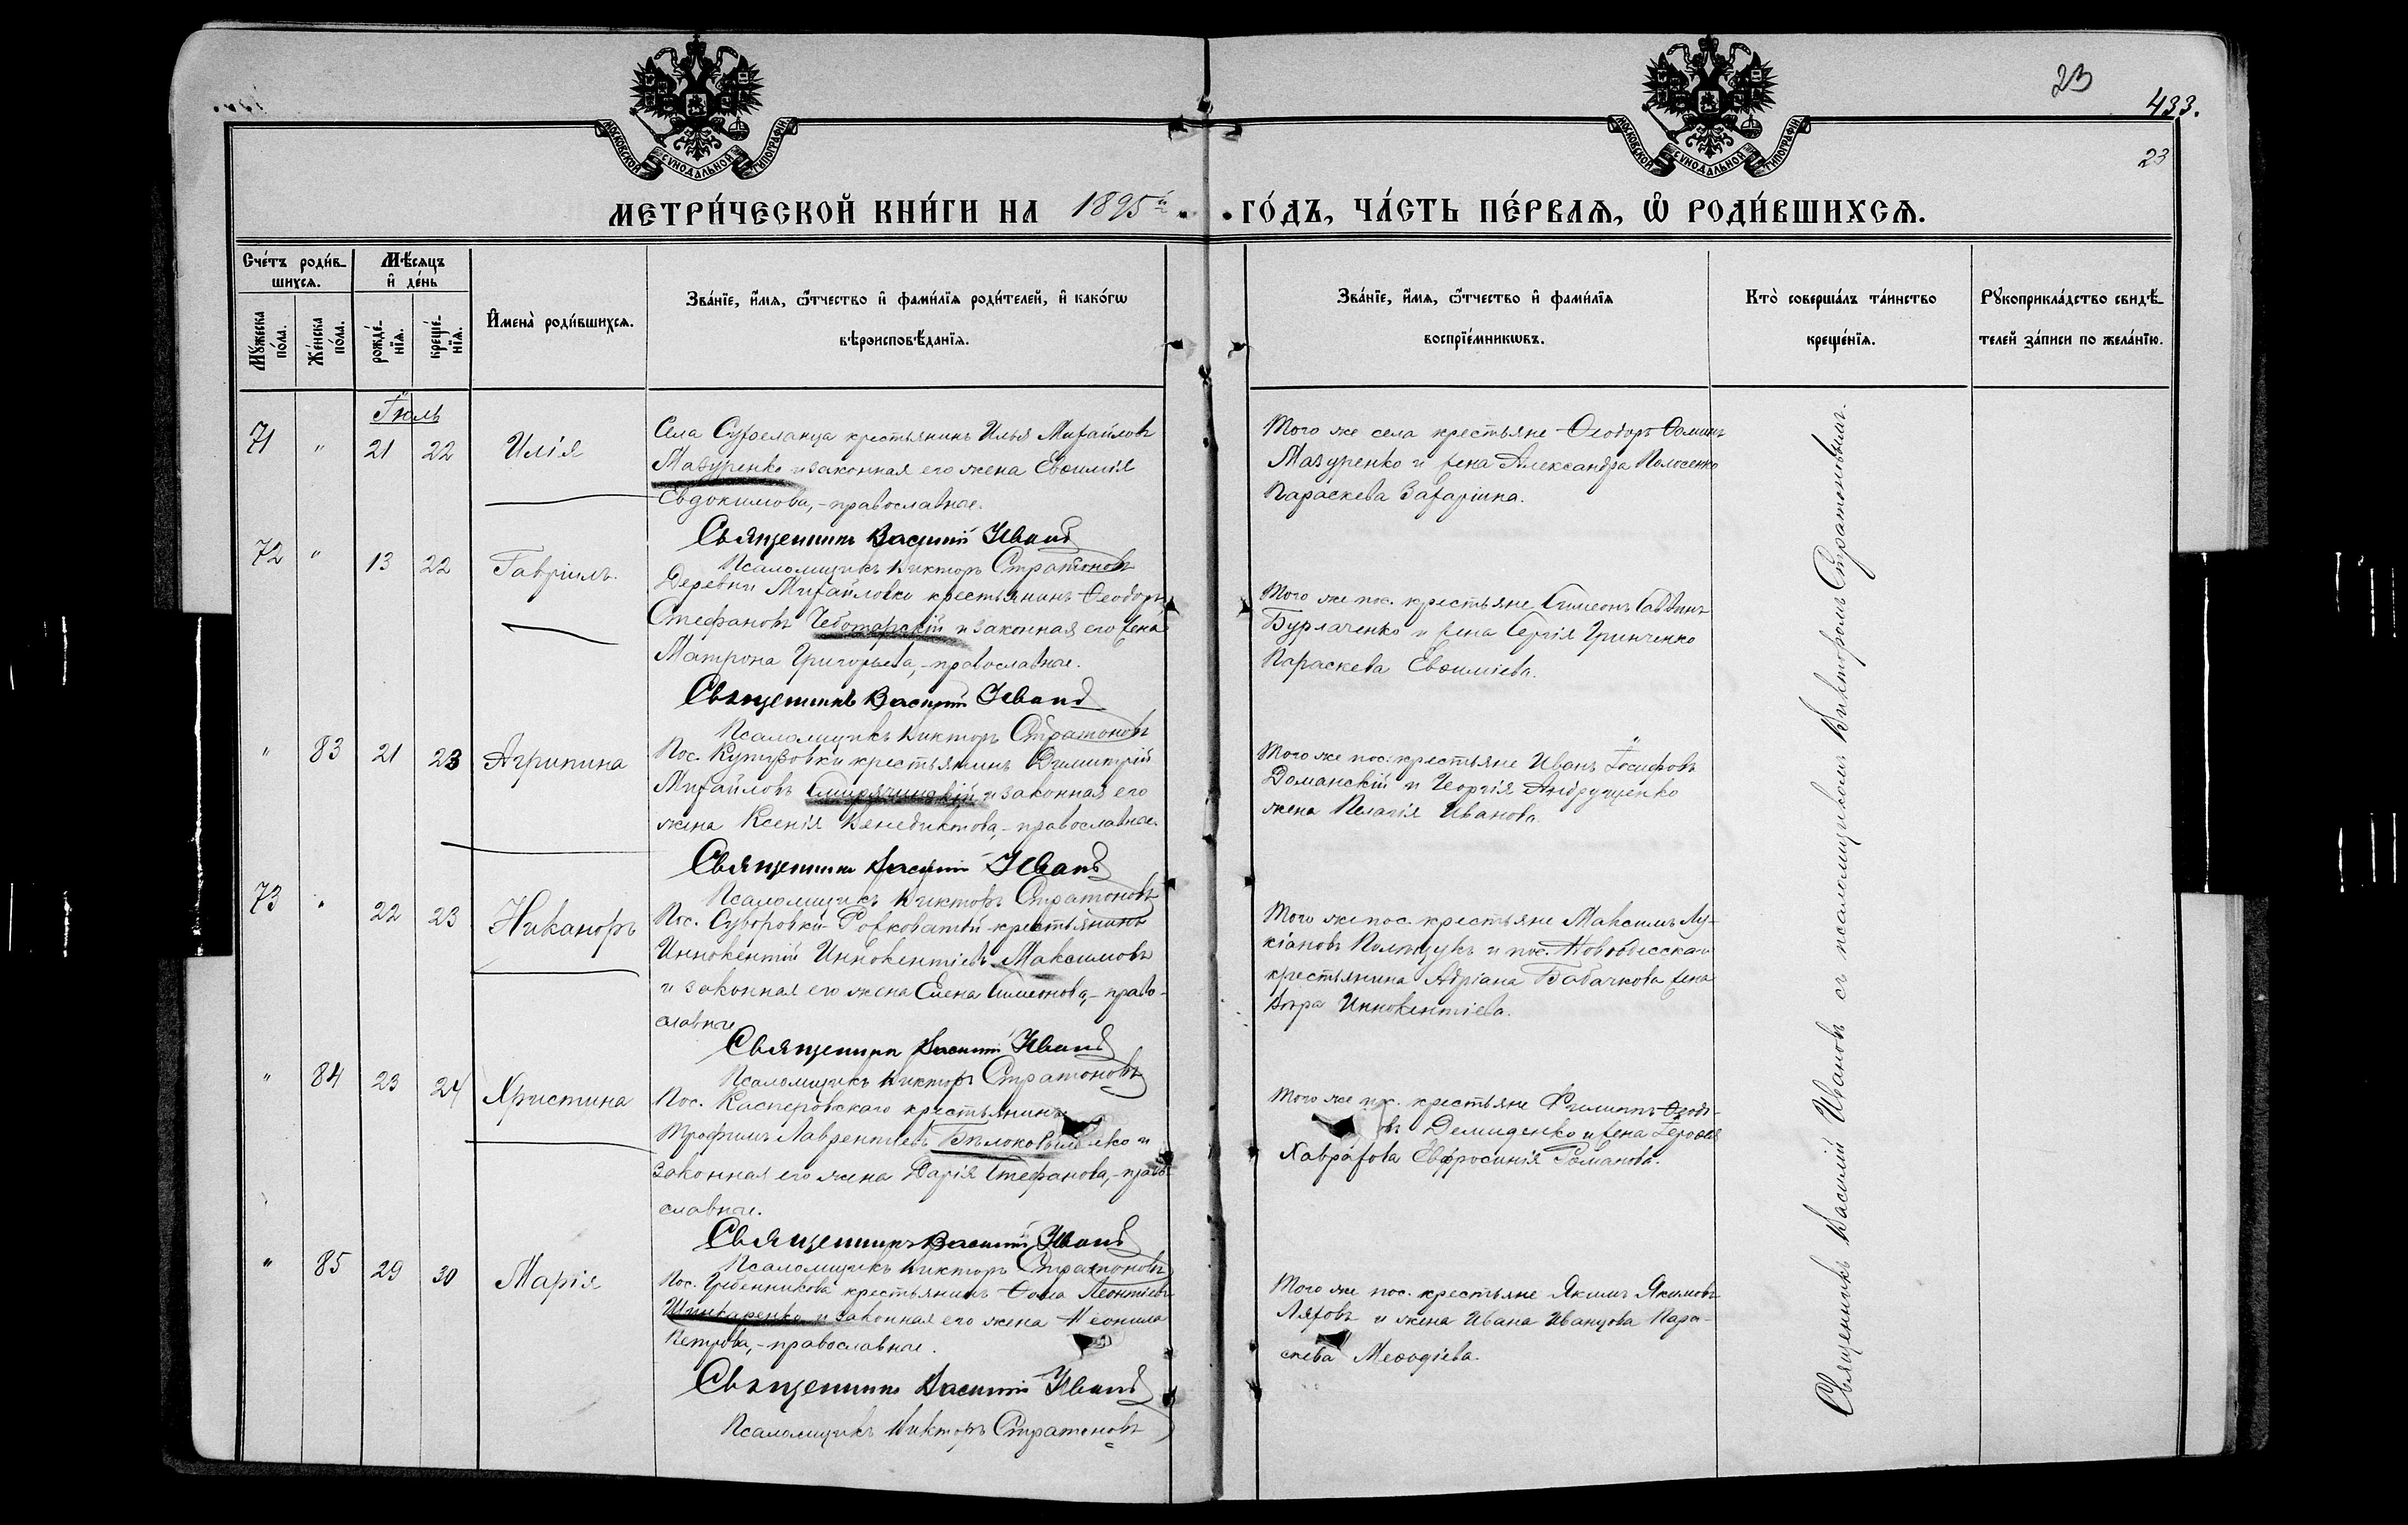 23
433.
23
МОСКОВСКОЙ СѴНОДАЛЬНОЙ ТИПОГРАФІИ
МОСКОВСКОЙ СѴНОДАЛЬНОЙ ТИПОГРАФІИ
МЕТРИ́ЧЕСКОЙ КНИ́ГИ НА 1895й ГО́ДЪ, ЧА́СТЬ ПЕ́РВАЯ, Ѡ РОДИ́ВШИХСЯ.
Сче́тъ роди́вшихся.
Му́жеска по́ла.
Же́нска по́ла.
Мѣ́сяцъ и де́нь
рожде́нїя.
креще́нїя.
Имена̀ роди́вшихся.
Зва́нїе, и́мя, ѻ́тчество и фами́лїя роди́телей, и како́гѡ
вѣроисповѣ́данїя.
Зва́нїе, и́мя, ѻ́тчество и фами́лїя
воспрїе́мникѡвъ.
Кто̀ соверша́лъ та́инство
креще́нїя.
Рукоприкла́дство свидѣ́телей за́писи по жела́нїю.
Іюль
71 " 21 22 Илія
Села Суфеланца крестьянинъ Илья Михайловъ
Мазуренко и законная его жена Евѳимія
Евдокимова, - православные.
Священникъ Василій Ивановъ
Псаломщикъ Викторъ Стратоновъ
Того же села крестьяне Ѳеодоръ Ѳоминъ
Мазуренко и жена Александра Полосенко
Параскева Захаріина.
72 " 13 22 Гавріилъ
Деревни Михайловки крестьянинъ Ѳеодоръ
Стефановъ Чеботарскій и законная его жена
Матрона Григорьева, - православные.
Священникъ Василій Ивановъ
Псаломщикъ Викторъ Стратоновъ
Того же пос. крестьяне Симеонъ Саввинъ
Бурлаченко и жена Сергія Гринченко
Параскева Евѳиміева.
" 83 21 23 Агрипина
Пос. Кутузовки крестьянинъ Димитрій
Михайловъ и законная его
жена Ксенія Венедиктова, - православные.
Священникъ Василій Ивановъ
Псаломщикъ Викторъ Стратоновъ
Того же пос. крестьяне Иванъ Іосифовъ
Доманскій и Георгія Андрущенко
жена Пелагія Иванова.
73 " 22 23 Никаноръ
Пос. Суворовки крестьянинъ
Иннокентій Иннокентіевъ Максимовъ
и законная его жена Елена Симеонова, - право-
славные.
Священникъ Василій Ивановъ
Псаломщикъ Викторъ Стратоновъ
Того же пос. крестьяне Максимъ Лу-
кіановъ Полищукъ и пос. Новоодесскаго
крестьянина Адріана Бабачкова жена
Вѣра Иннокентіева.
" 84 23 24 Христина
Пос. Касперовскаго крестьянинъ
Трофимъ Лаврентіевъ Бѣлоко и
законная его жена Дарія Стефанова, - право-
славные.
Священникъ Василій Ивановъ
Псаломщикъ Викторъ Стратоновъ
Того же пос. крестьяне Филиппъ Ѳеодо-
овъ Демиденко и жена Іероѳея
Лаврафова Евфросинія Романова.
" 85 29 30 Марія
Пос. Гребенникова крестьянинъ Ѳома Леонтіевъ
Шинкаренко и законная его жена Неонила
Петрова, - православные.
Священникъ Василій Ивановъ
Псаломщикъ Викторъ Стратоновъ
Того же пос. крестьяне Якимъ Якимовъ
Ляховъ и жена Ивана Иванцова Пара-
скева Меѳодіева.
Священникъ Василій Ивановъ съ псаломщикомъ Викторомъ Стратоновымъ.